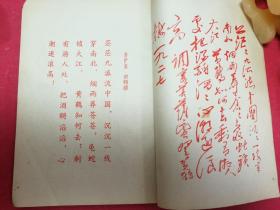 菩萨蛮 黄鹤楼
茫茫九派流中国,沉沉一线
穿南北。烟雨莽苍苍,龟蛇
锁大江。 黄鹤知何去?剩
有游人处。把酒酹滔滔,心
潮逐浪高!
茫茫九派流中国沉沉一线
南北烟雨莽苍苍龟蛇锁
大江黄鹤知何去剩有游人
处把酒酹滔滔心潮逐浪
高 调寄菩萨蛮
一九二七